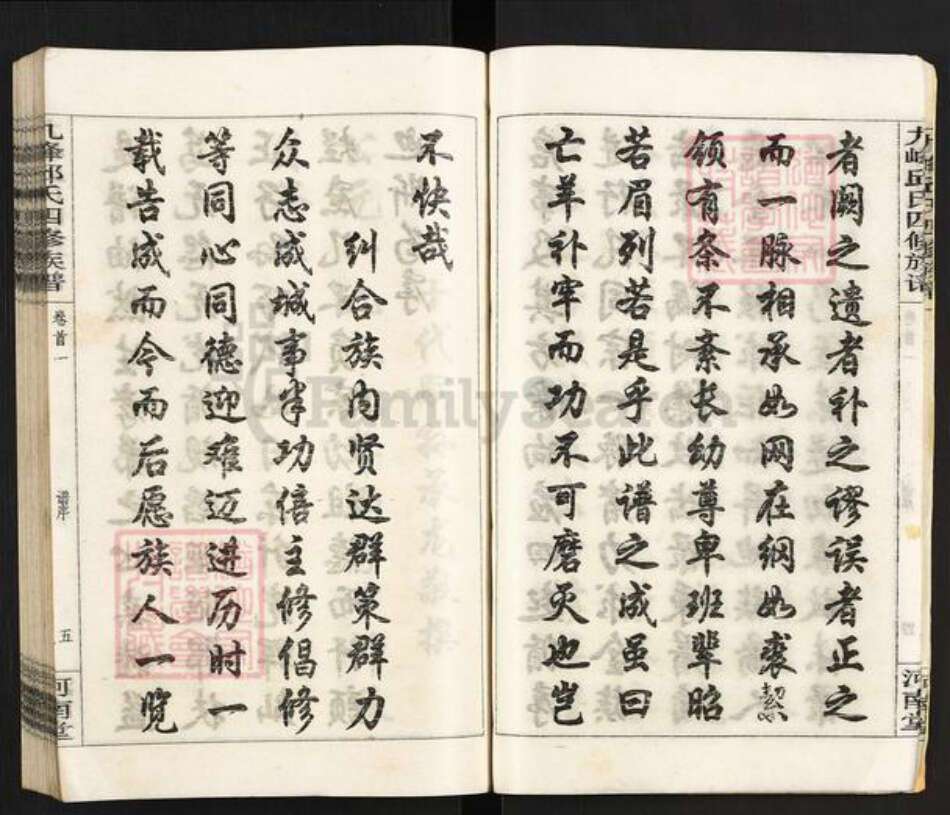 九峰邱氏四修族谱
河南堂
者阙之遗者补之谬误者正之
而一脉相承如网在纲如裘絜
领有条不紊长幼尊卑班辈昭
若眉列若是乎此谱之成虽曰
亡羊补牢而功不可磨灭也岂
不快哉
纠合族内贤达群策群力
众志成城事半功倍主修倡修
等同心同德迎难迈进历时一
载告成而今而后愿族人一览
九峰邱氏四修族谱
卷首一
谱序
五
河南堂
FamilySearch